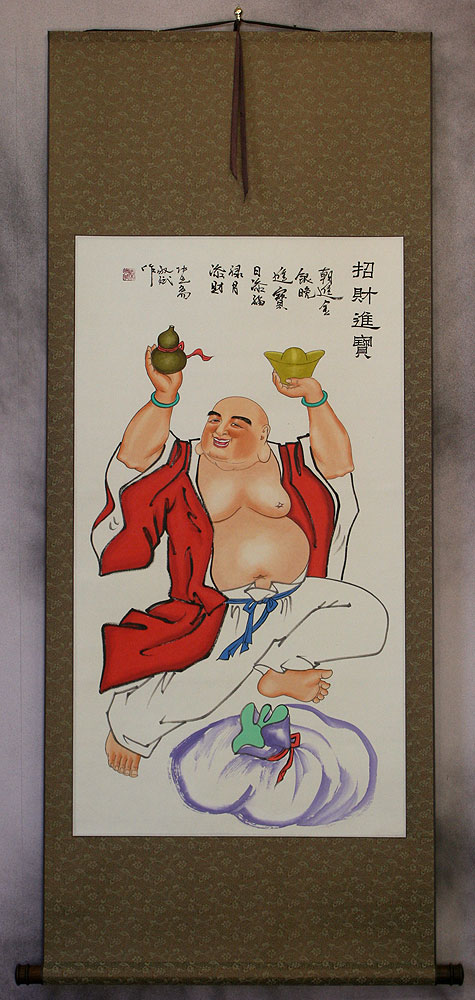 招財進寶
朝進金
銀晚
進寶
日添福
祿月
添財